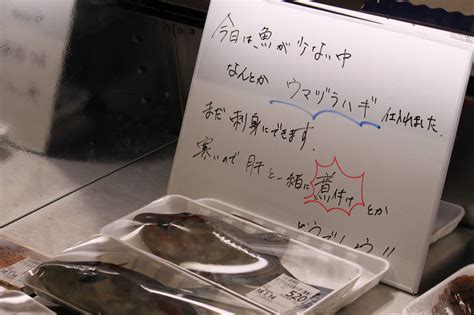 今日は、魚が少ない中
なんとか ウマヅラハギ 仕入れました.
まだ 刺身にできます.
寒いので 肝と一緒に 煮付け とか
どうでしょう!!
520